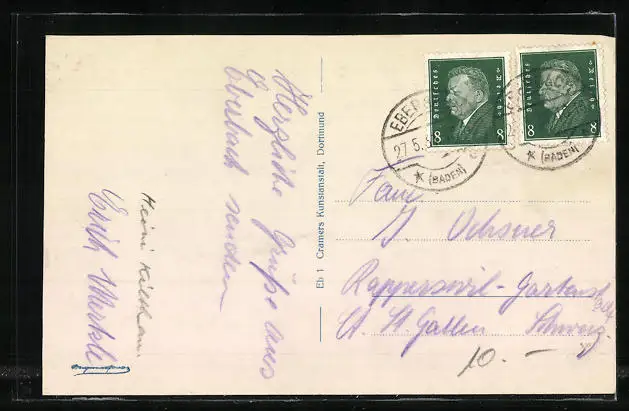 Herzliche Grüße aus
Eberbach senden
Heini
Erich Merkle
Eb 1 Cramers Kunstanstalt, Dortmund
Deutsches Reich
8 8
Deutsches Reich
8 8
EBER
27.5.
(BADEN)
(BADEN)
Frau
J. Ochsner
Rapperswil-Gartenstadt
Kt. St. Gallen Schweiz
10.–